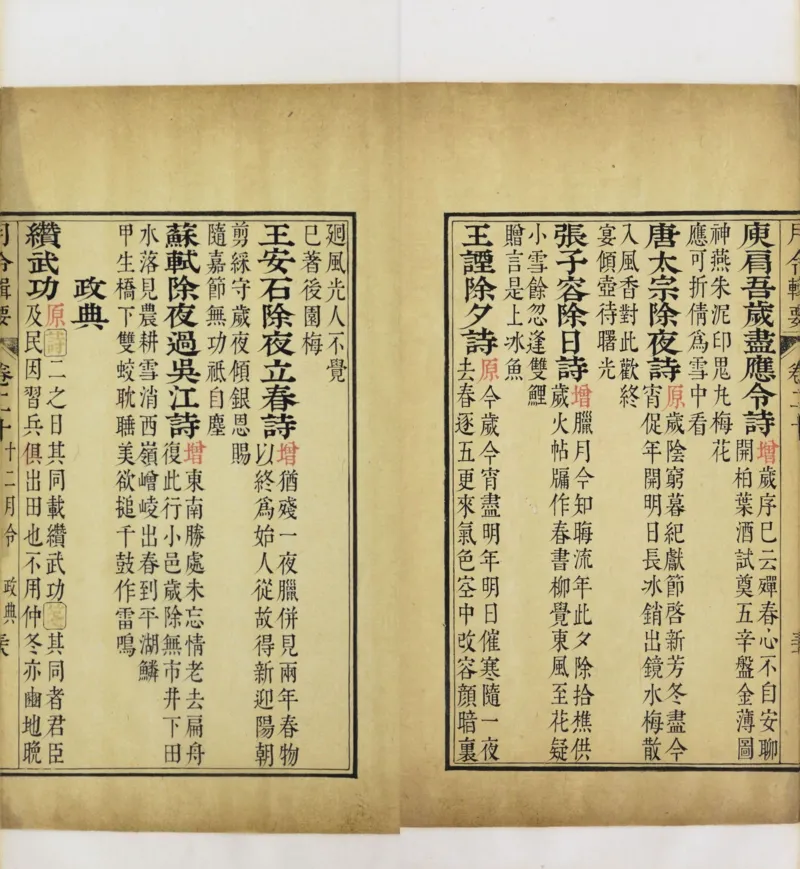 月令輯要 卷二十
庾肩吾歲盡應令詩增歲序巳云殫春心不自安聊
開柏葉酒試奠五辛盤金薄圖
神燕朱泥印鬼丸梅花
應可折倩爲雪中看
唐太宗除夜詩原歲陰窮暮紀獻節啓新芳冬盡今
宵促年開明日長冰銷出鏡水梅散
入風香對此歡終
宴傾壺待曙光
張子容除日詩增臘月今知晦流年此夕除拾樵供
歲火帖牖作春書柳覺東風至花疑
小雪餘忽逢雙鯉
贈言是上冰魚
王諲除夕詩原今歲今宵盡明年明日催寒隨一夜
去春逐五更來氣色空中改容顏暗裏
廻風光人不覺
巳著後園梅
王安石除夜立春詩增猶殘一夜臘併見兩年春物
以終爲始人從故得新迎陽朝
剪綵守歲夜傾銀恩賜
隨嘉節無功祗自塵
蘇軾除夜過吳江詩增東南勝處未忘情老去扁舟
復此行小邑歲除無市井下田
水落見農耕雪消西嶺嶒崚出春到平湖鱗
甲生橋下雙蛟耽睡美欲搥千鼓作雷鳴
政典
纘武功原二之日其同載纘武功其同者君臣
及民因習兵俱出田也不用仲冬亦豳地晚
月令輯要 卷二十 十二月令 政典